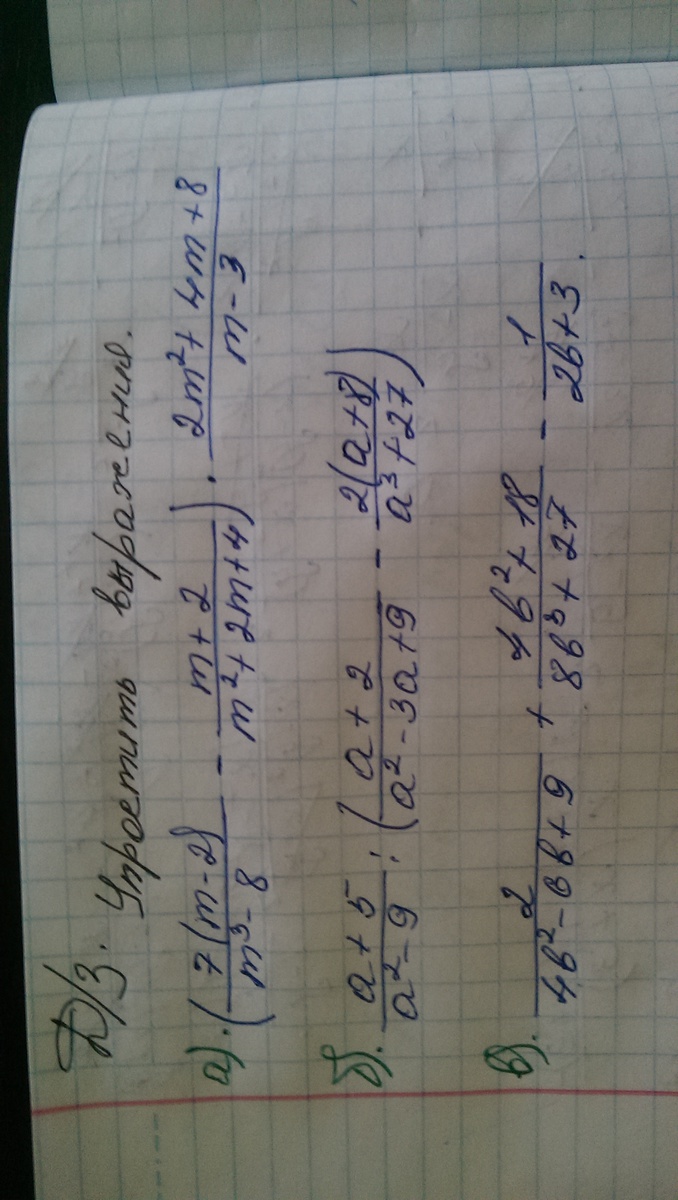 Д/З. Упростить выражения.
а). (7(m-2)/(m³-8) - (m+2)/(m²+2m+4)) · (2m²+4m+8)/(m-3)
б). (a+5)/(a²-9) : ((a+2)/(a²-3a+9) - 2(a+8)/(a³+27))
в). 2/(4b²-6b+9) + (4b²+18)/(8b³+27) - 1/(2b+3).